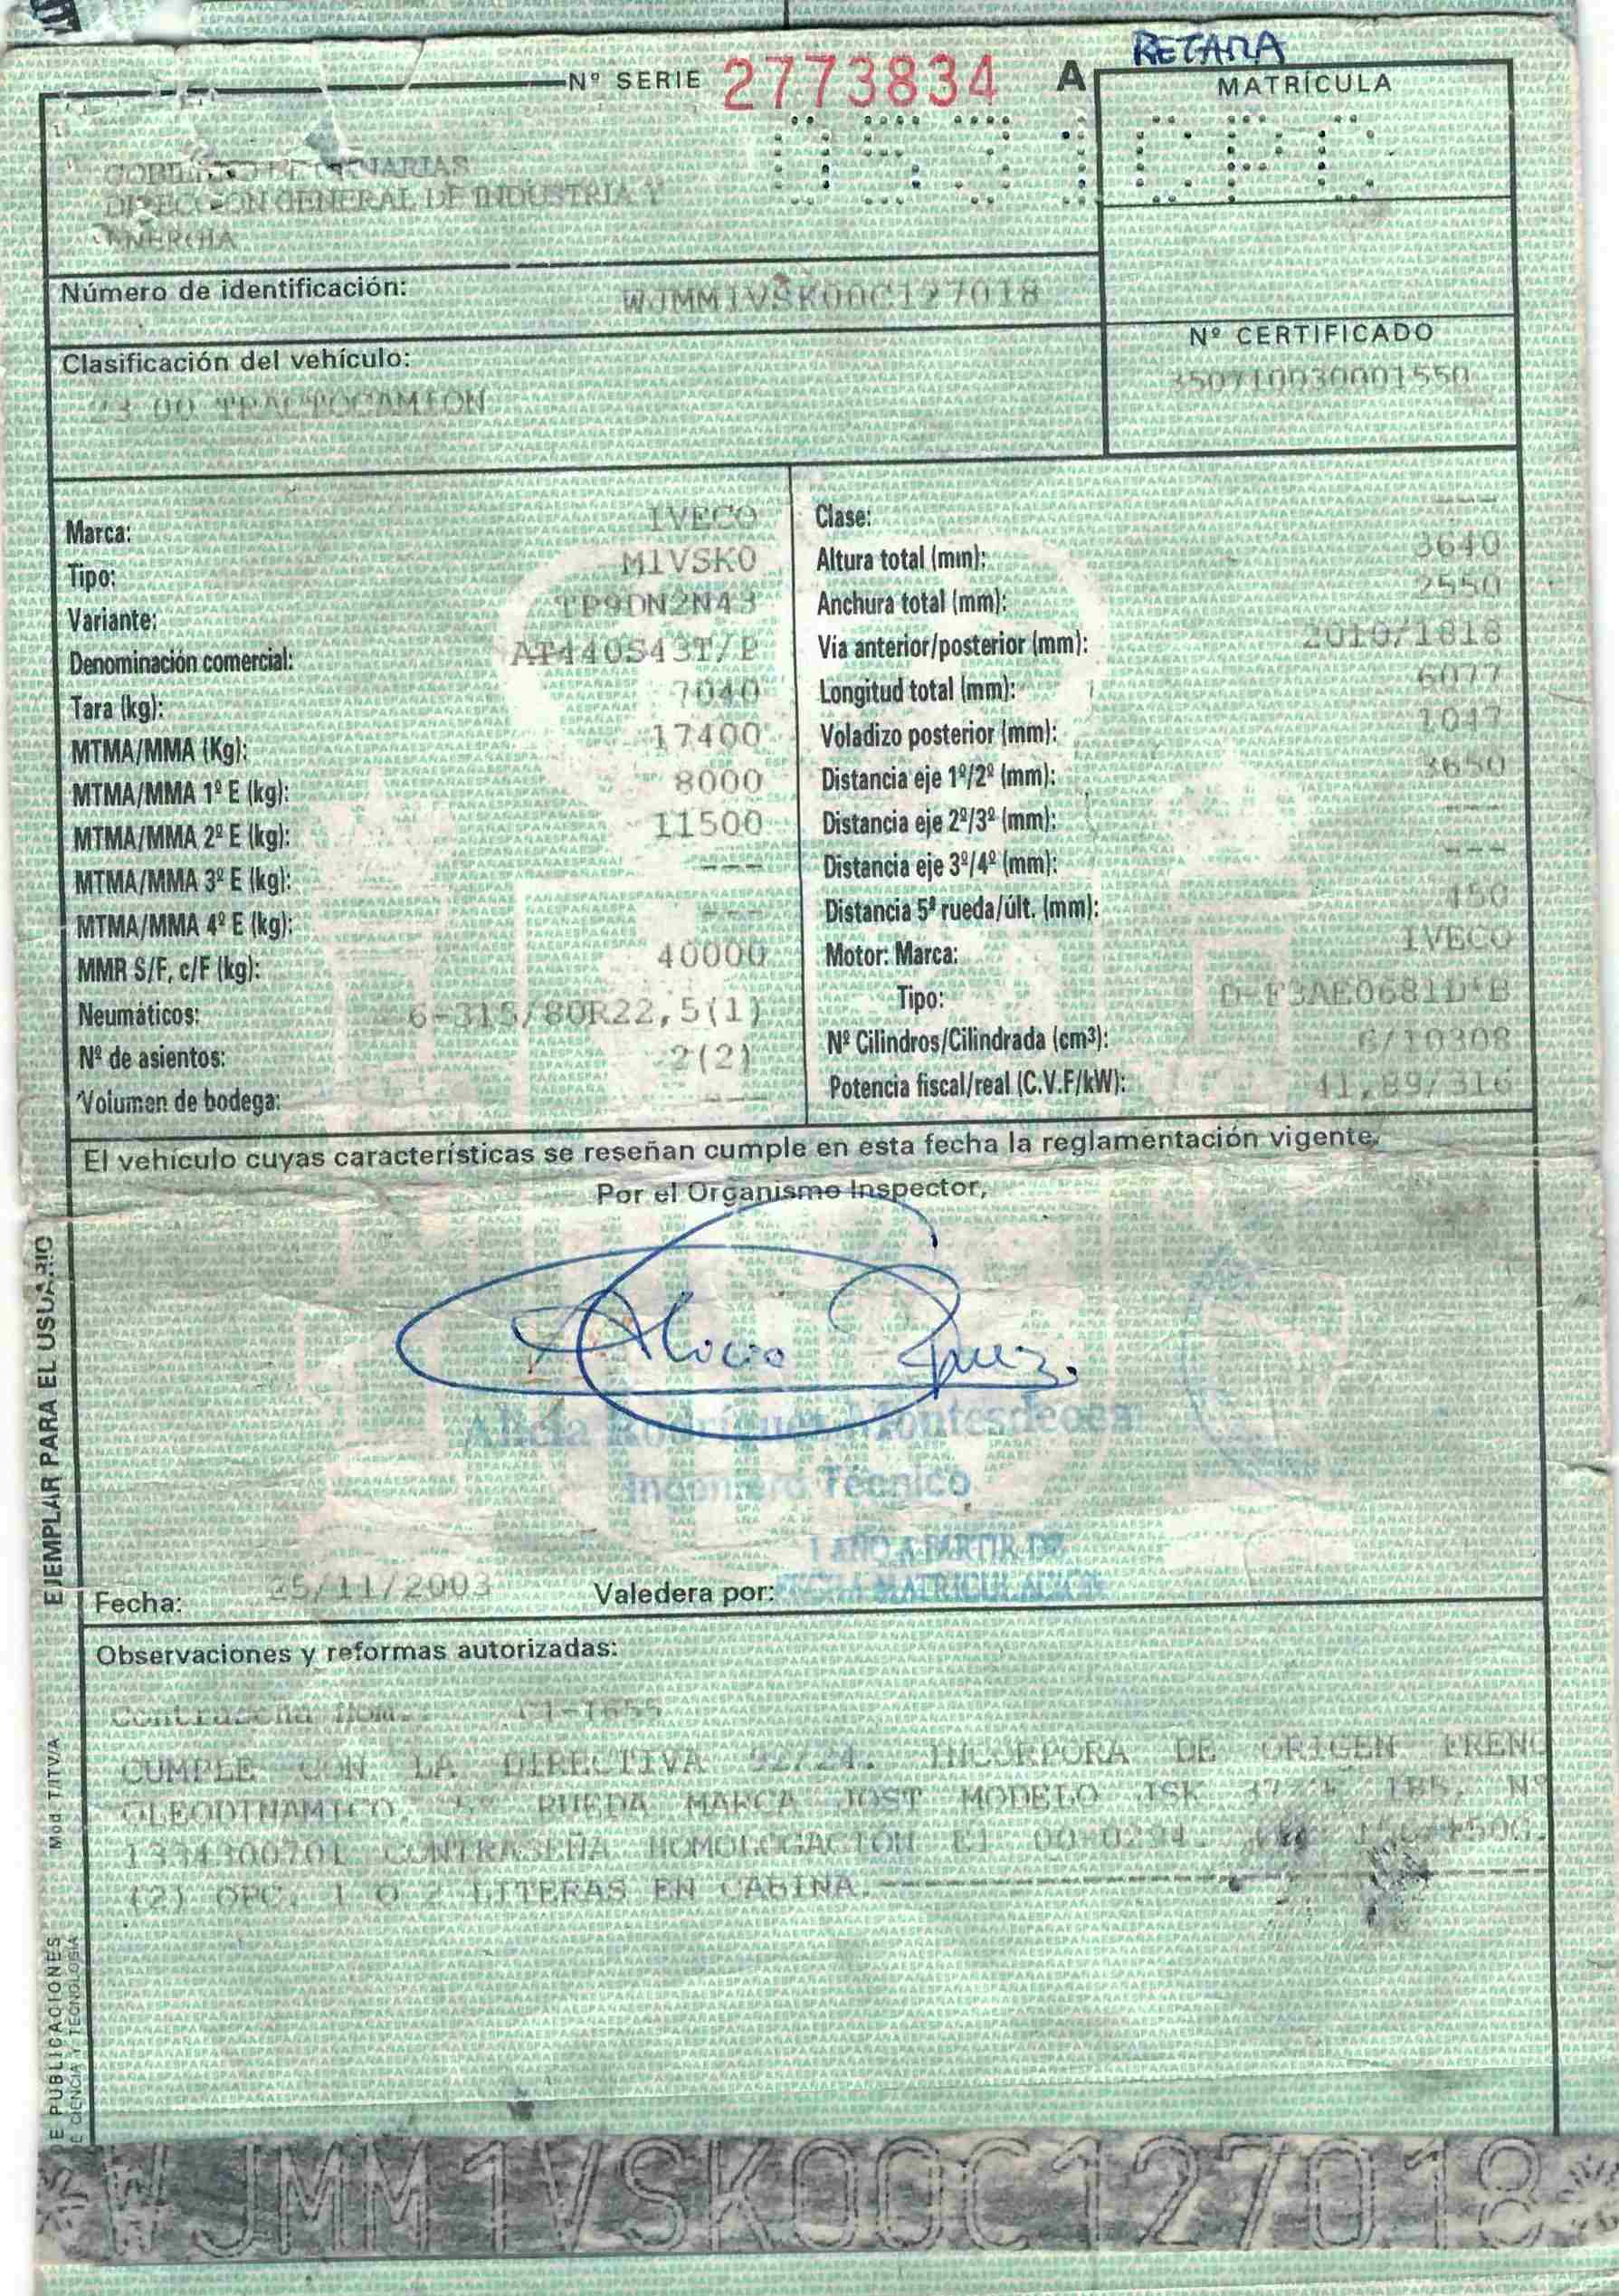 RETARA
Nº SERIE 2773834 A
MATRÍCULA
CPC
GOBIERNO DE CANARIAS
DIRECCION GENERAL DE INDUSTRIA Y
ENERGIA
Número de identificación: WJMM1VSK00C127018
Nº CERTIFICADO
350710030001550
Clasificación del vehículo:
23 00 TRACTOCAMION
Marca: IVECO
Tipo: M1VSK0
Variante: TP9DN2N43
Denominación comercial: AT440S43T/P
Tara (kg): 7040
MTMA/MMA (Kg): 17400
MTMA/MMA 1º E (kg): 8000
MTMA/MMA 2º E (kg): 11500
MTMA/MMA 3º E (kg): ---
MTMA/MMA 4º E (kg): ---
MMR S/F, c/F (kg): 40000
Neumáticos: 6-315/80R22,5(1)
Nº de asientos: 2(2)
Volumen de bodega: ---
Clase: ---
Altura total (mm): 3640
Anchura total (mm): 2550
Via anterior/posterior (mm): 2010/1818
Longitud total (mm): 6077
Voladizo posterior (mm): 1047
Distancia eje 1º/2º (mm): 3650
Distancia eje 2º/3º (mm): ---
Distancia eje 3º/4º (mm): ---
Distancia 5ª rueda/últ. (mm): 450
Motor: Marca: IVECO
Tipo: D-F3AE0681D*B
Nº Cilindros/Cilindrada (cm³): 6/10308
Potencia fiscal/real (C.V.F/kW): 41,89/316
El vehículo cuyas características se reseñan cumple en esta fecha la reglamentación vigente,
Por el Organismo Inspector,
Alicia Rodríguez Montesdeoca
Ingeniero Técnico
1 AÑO A PARTIR DE
FECHA MATRICULACION
Fecha: 25/11/2003 Valedera por:
Observaciones y reformas autorizadas:
Contraseña Hom.: CI-1655
CUMPLE CON LA DIRECTIVA 92/24. INCORPORA DE ORIGEN FRENO
OLEODINAMICO. 5ª RUEDA MARCA JOST MODELO JSK Nº
CONTRASEÑA HOMOLOGACIÓN E1 00-0294.
(2) OPC. 1 O 2 LITERAS EN CABINA.
EJEMPLAR PARA EL USUARIO
Mod T/ITV/A
DE PUBLICACIONES
E CIENCIA Y TECNOLOGÍA
*WJMM1VSK00C127018*